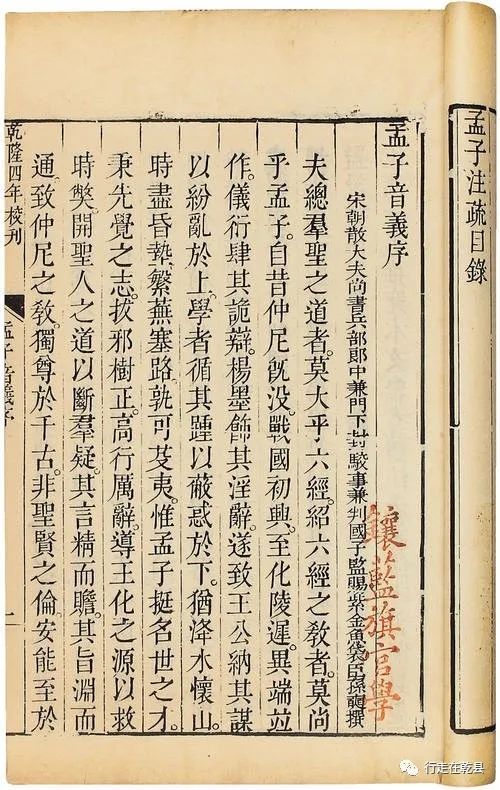 孟子注疏目錄
孟子音義序
宋朝散大夫尚書兵部郎中兼門下封駮事兼判國子監賜紫金魚袋臣孫奭撰
夫總羣聖之道者。莫大乎六經。紹六經之教者。莫尚
乎孟子。自昔仲尼旣没。戰國初興。至化陵遲。異端竝
作。儀衍肆其詭辯。楊墨飾其淫辭。遂致王公納其謀
以紛亂於上。學者循其踵以蔽惑於下。猶洚水懷山
時盡昏墊。繁蕪塞路。孰可芟夷。惟孟子挺名世之才
秉先覺之志。拔邪樹正。高行厲辭。導王化之源以救
時獘。開聖人之道以斷羣疑。其言精而贍。其旨淵而
通。致仲尼之教。獨尊於千古。非聖賢之倫。安能至於
乾隆四年校刊
孟子音義序
一
鑲藍旗官學
行走在乾县